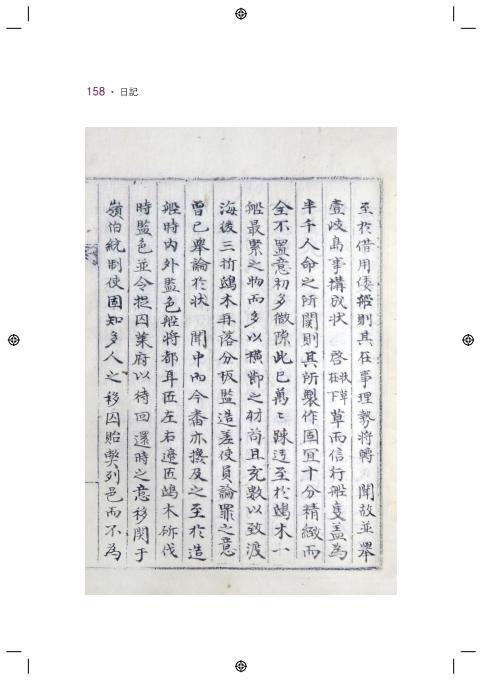 158 · 日記
至於借用倭船則其在事理勢將轉 聞故並舉
壹岐島事構成狀 啓狀草在下草而信行船隻盖為
半千人命之所關則其所製作固宜十分精緻而
全不置意初多微隙此已萬〻踈迃至於鴟木一
船最累之物而多以横節之材苟且充數以致渡
海後三折鴟木再落分板監造差使員論罪之意
曾已舉論於狀 聞中而今番亦撥及之至於造
船時內外監色船將都耳匠左右邊匠鴟木斫伐
時監色並令捉囚萊府以待回還時之意移関于
嶺伯統制使固知多人之移囚貽弊列邑而不為